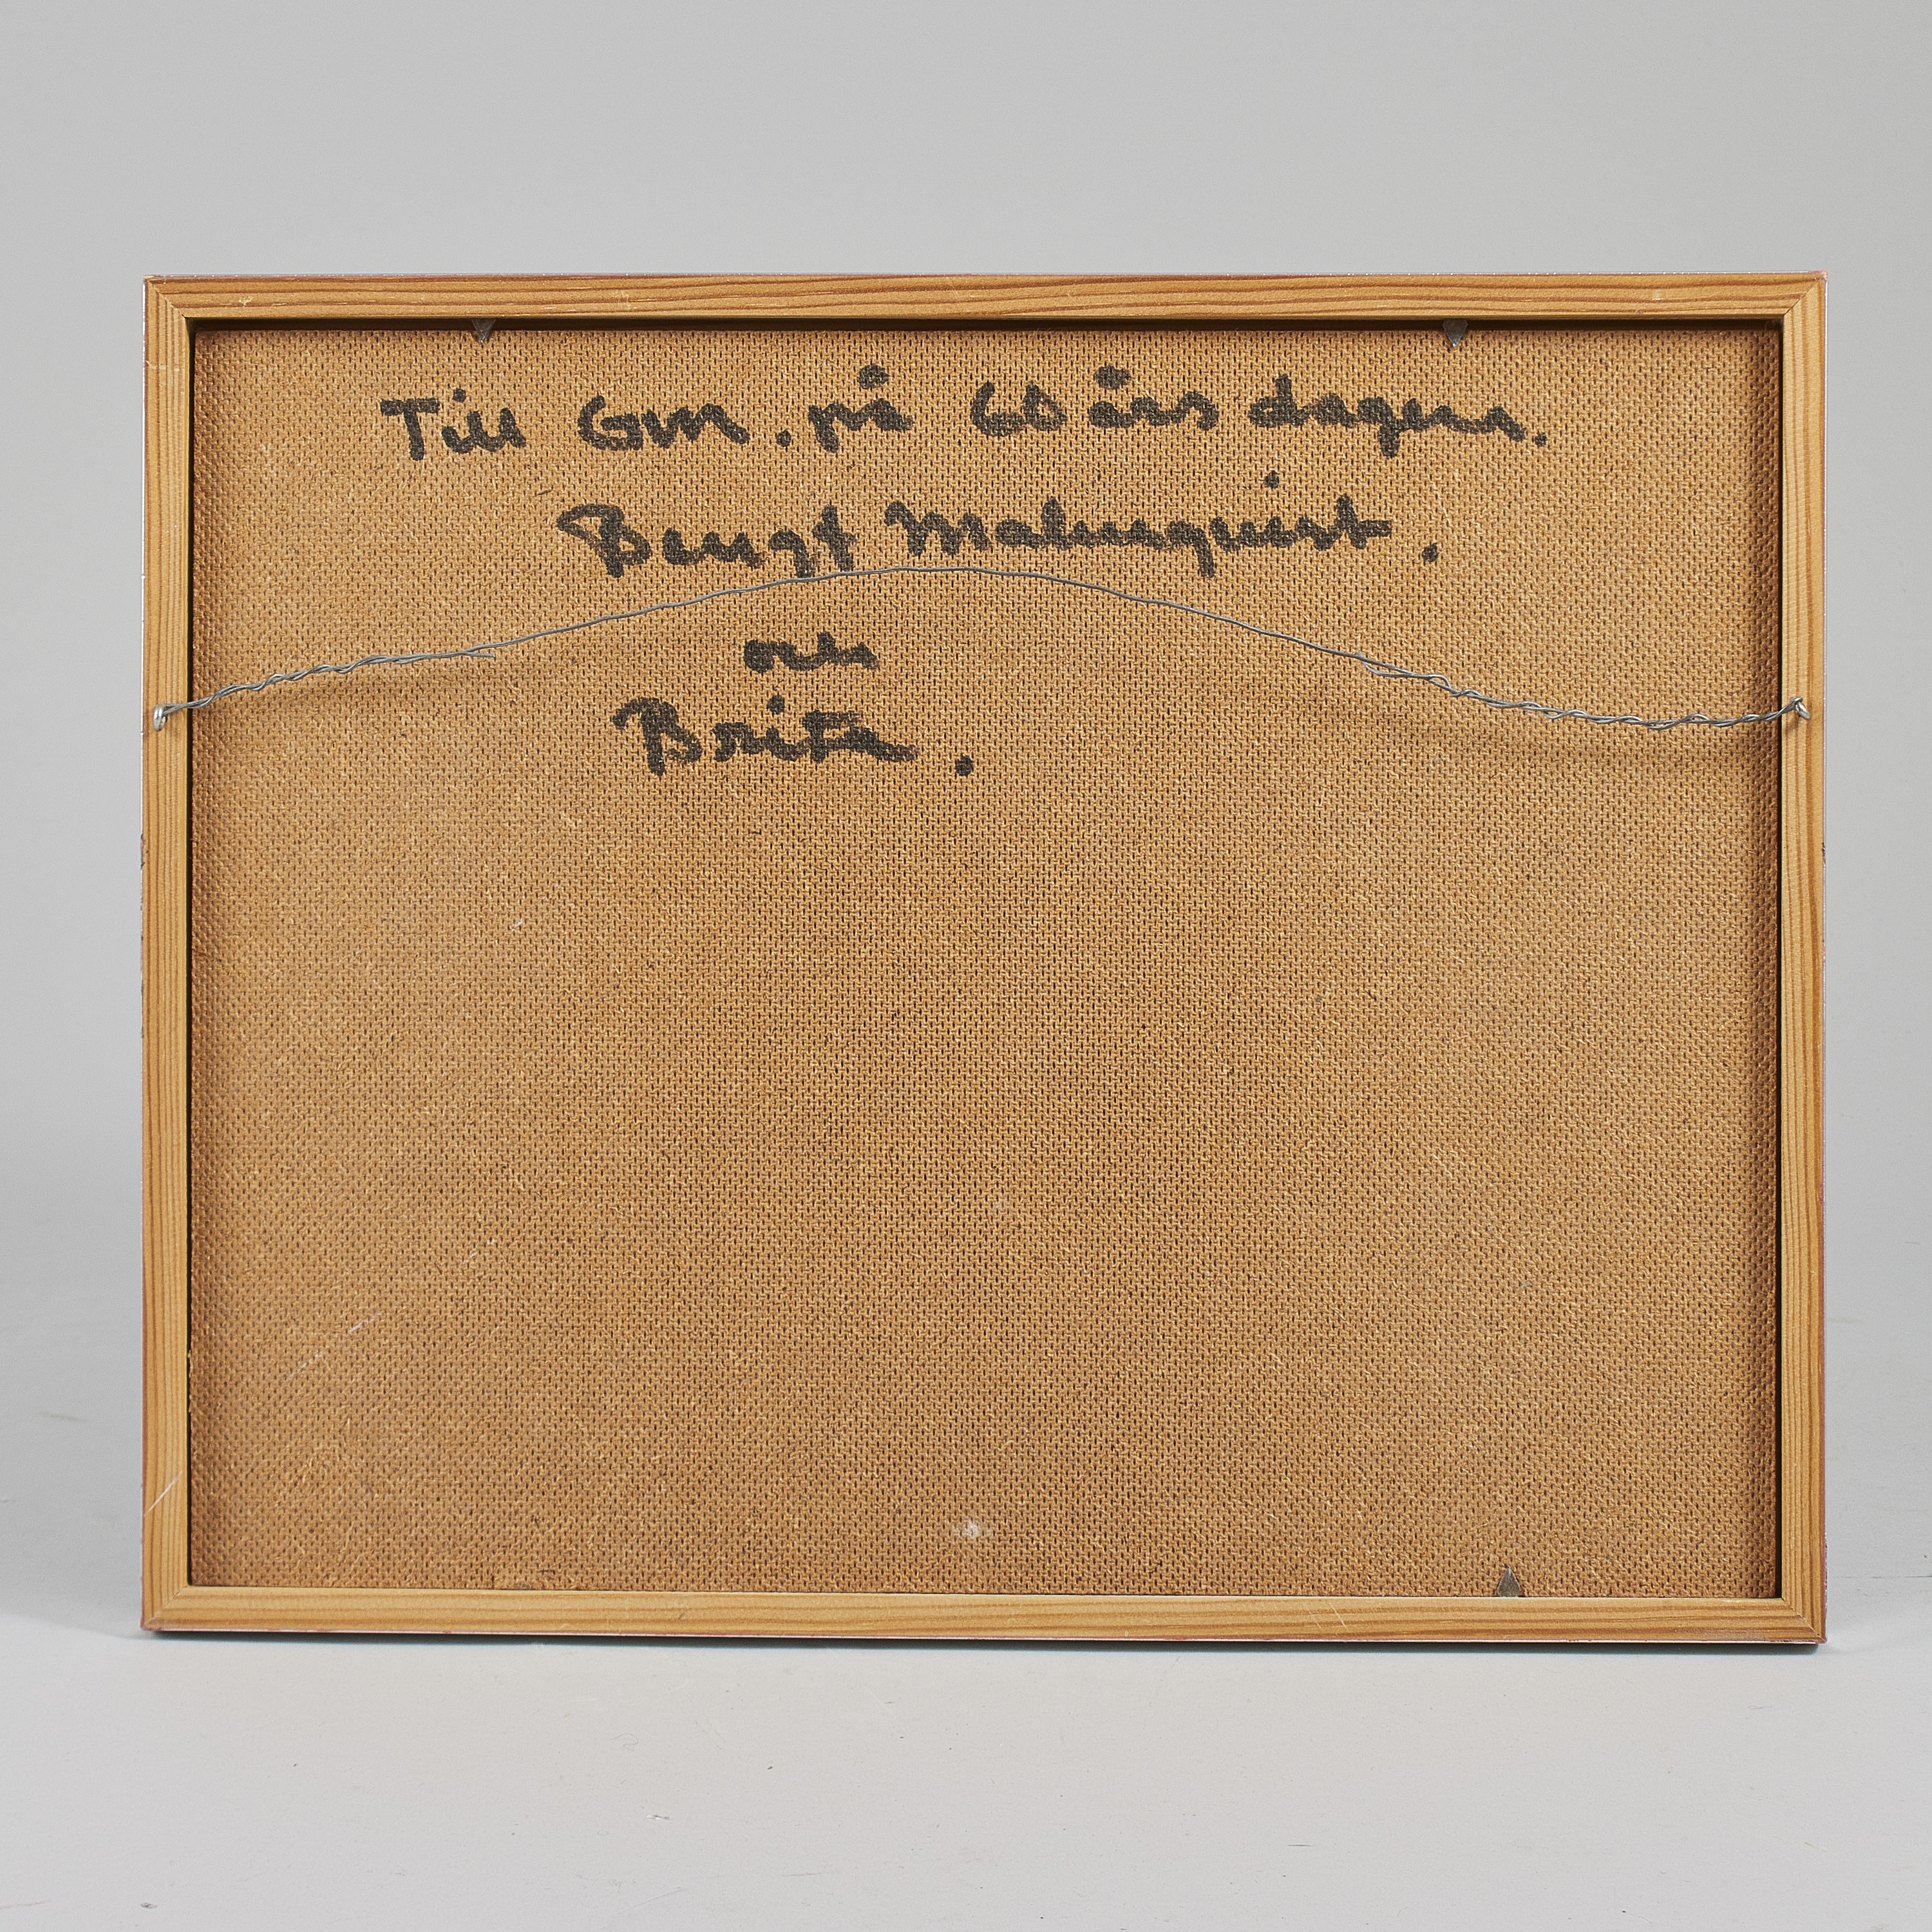 Till Gun. på 60 års dagen.
Bengt Malmquist.
och
Brita.